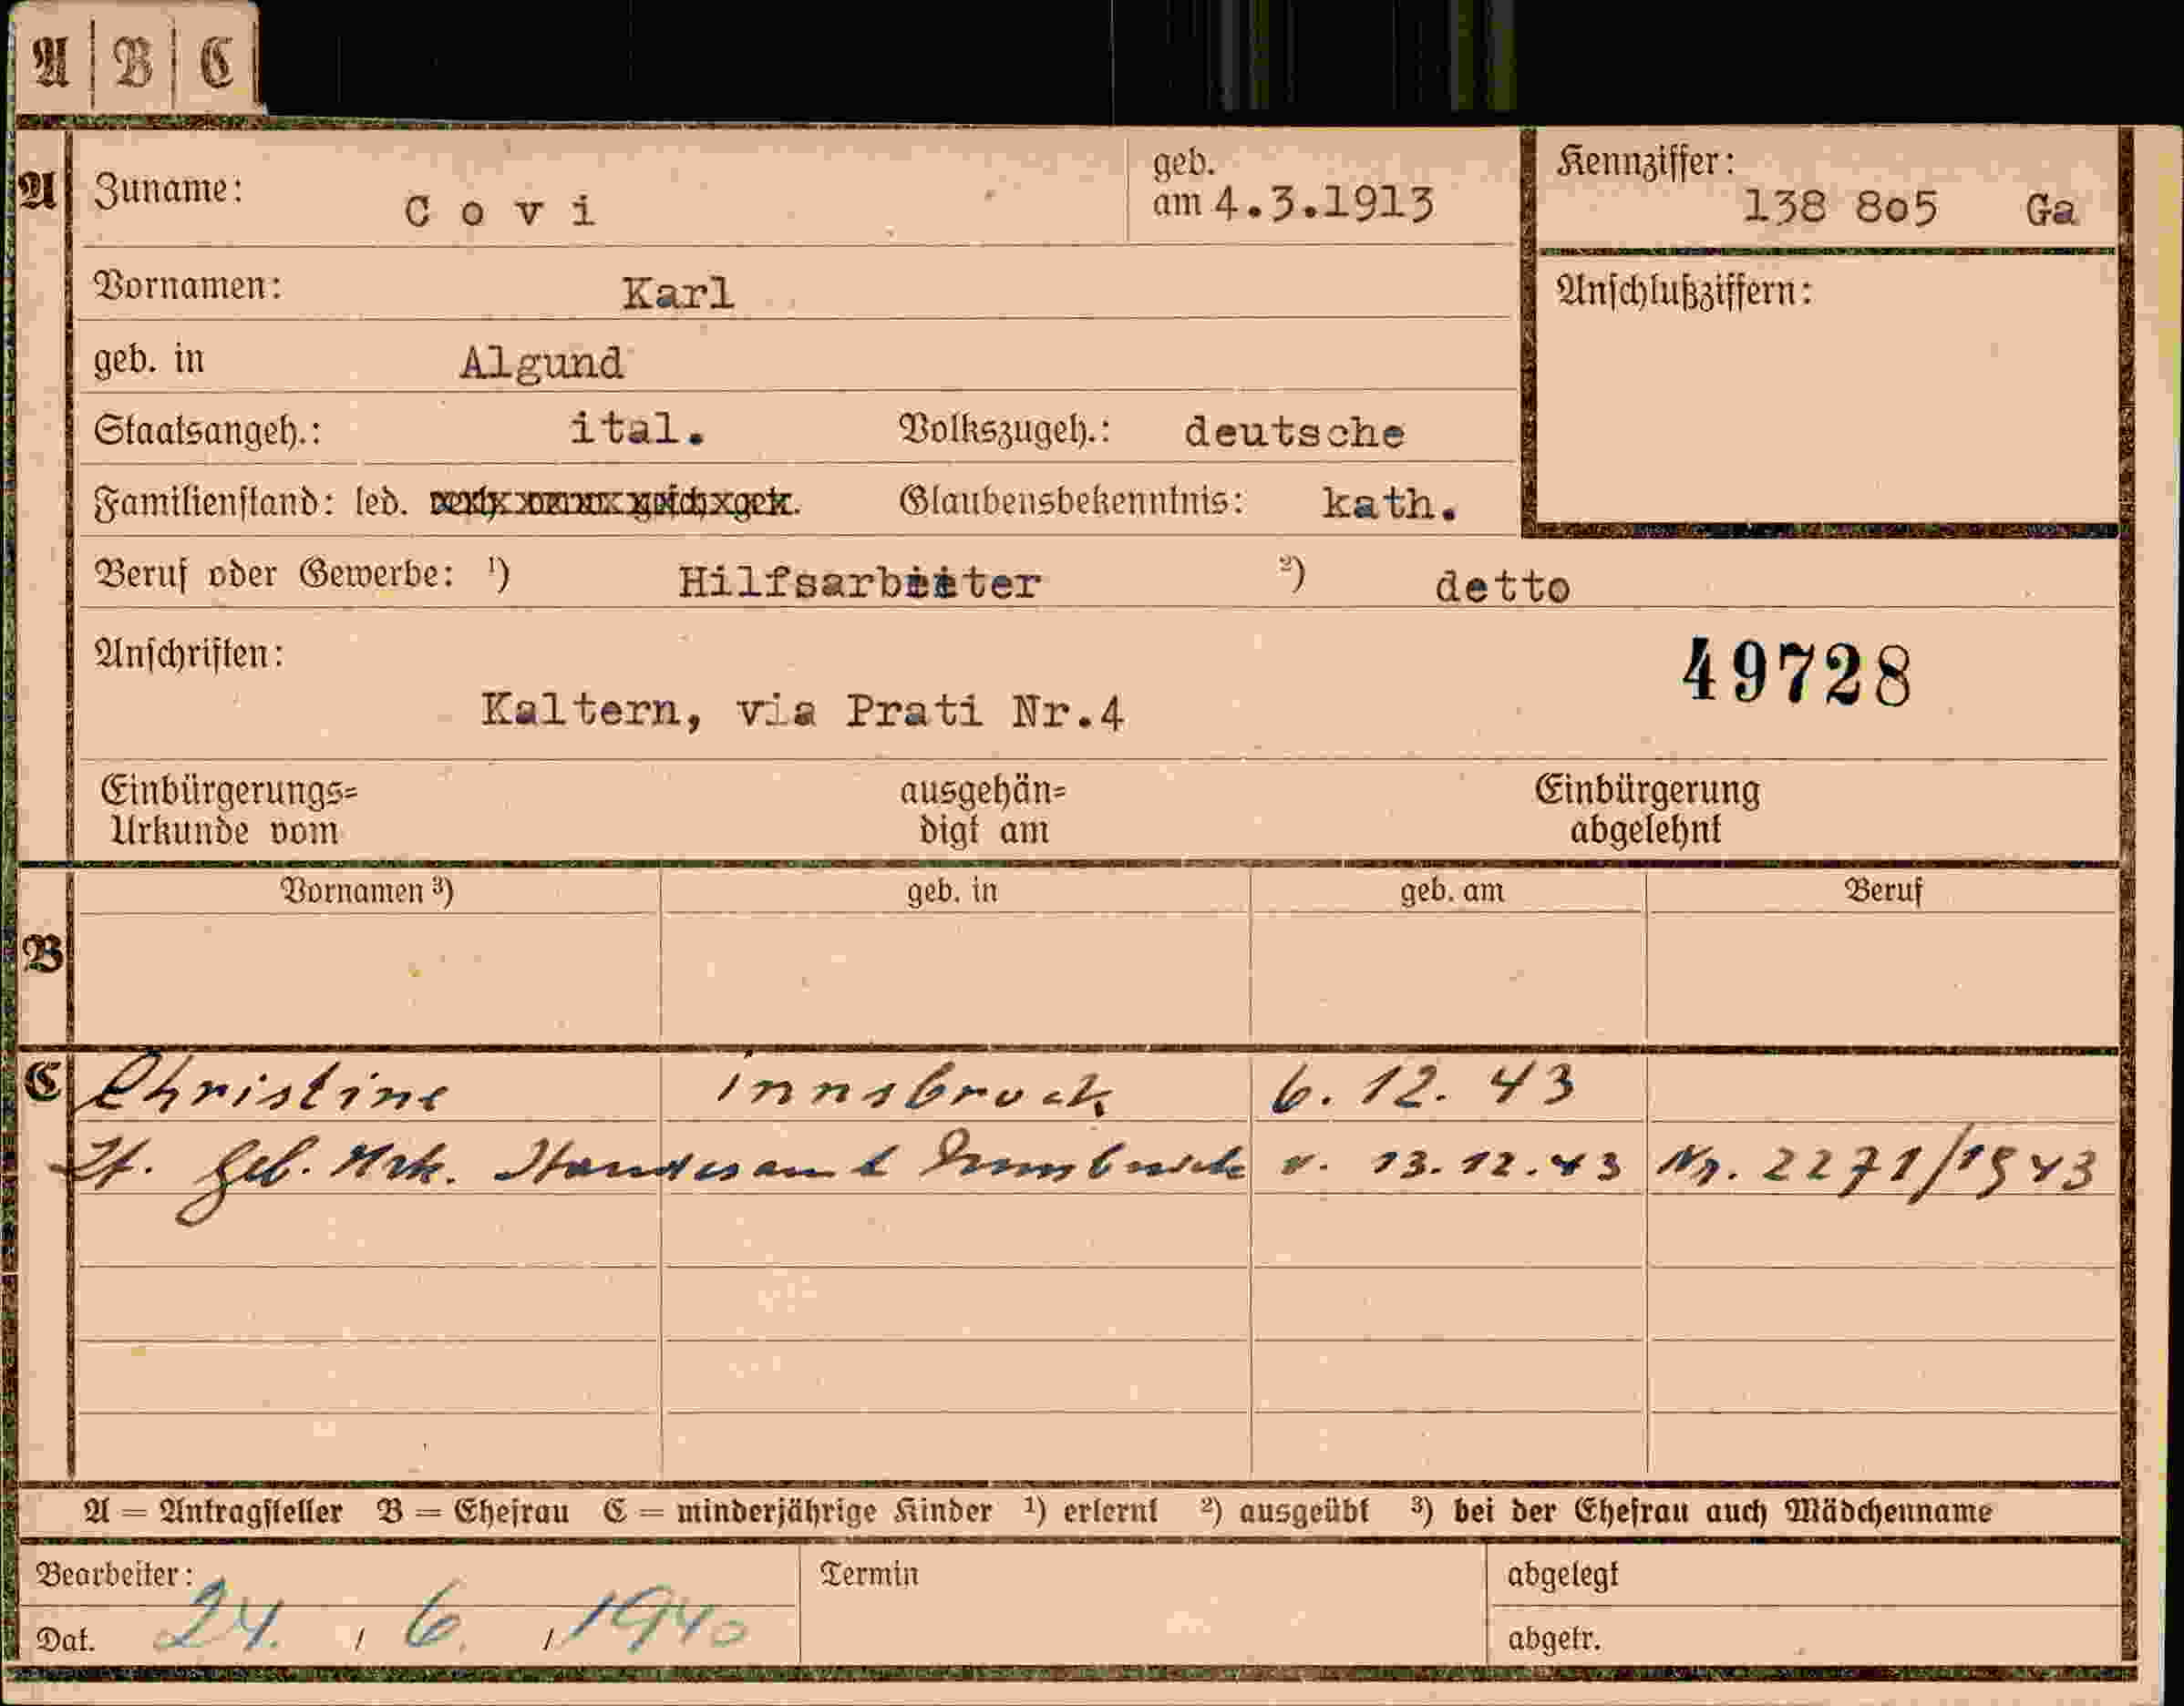 A | B | C
A Zuname: Covi geb. am 4.3.1913 Kennziffer: 138 805 Ga
Vornamen: Karl Anschlußziffern:
geb. in Algund
Staatsangeh.: ital. Volkszugeh.: deutsche
Familienstand: led. Glaubensbekenntnis: kath.
Beruf oder Gewerbe: ¹) Hilfsarbeiter ²) detto
Anschriften: 49728
Kaltern, via Prati Nr.4
Einbürgerungs= ausgehän= Einbürgerung
Urkunde vom digt am abgelehnt
Vornamen ³) geb. in geb. am Beruf
B
C Christine innsbruck 6. 12. 43
Lt. Geb. Urk. Standesamt Innsbruck v. 13.12.43 Nr. 2271/1943
A = Antragsteller B = Ehefrau C = minderjährige Kinder ¹) erlernt ²) ausgeübt ³) bei der Ehefrau auch Mädchenname
Bearbeiter: Termin abgelegt
Dat. 24. / 6. / 1940 abgetr.